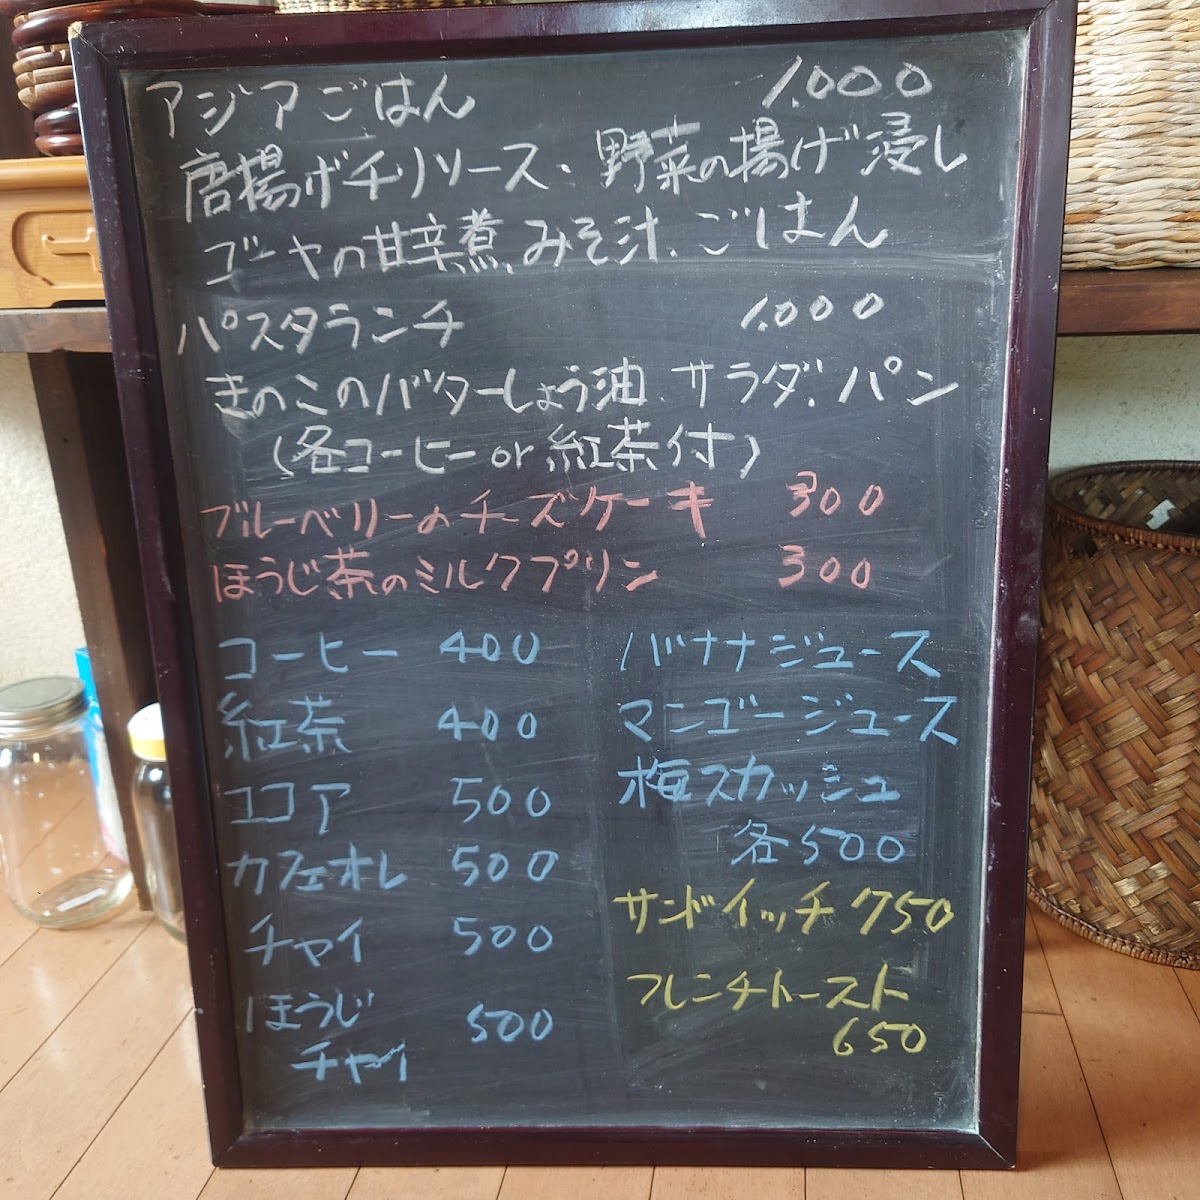 アジアごはん 1.000
唐揚げチリソース・野菜の揚げ浸し
ゴーヤの甘辛煮、みそ汁、ごはん
パスタランチ 1.000
きのこのバターしょう油、サラダ、パン
(各コーヒーor紅茶付)
ブルーベリーのチーズケーキ 300
ほうじ茶のミルクプリン 300
コーヒー 400
紅茶 400
ココア 500
カフェオレ 500
チャイ 500
ほうじ 500
チャイ
バナナジュース
マンゴージュース
梅スカッシュ
各500
サンドイッチ 750
フレンチトースト
650